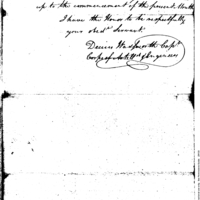 up to the commencement of the present Month
I have the Honor to be respectfully
your obed. Servant
Decius Wadsworth Capt
Corps of Artill & Engineers